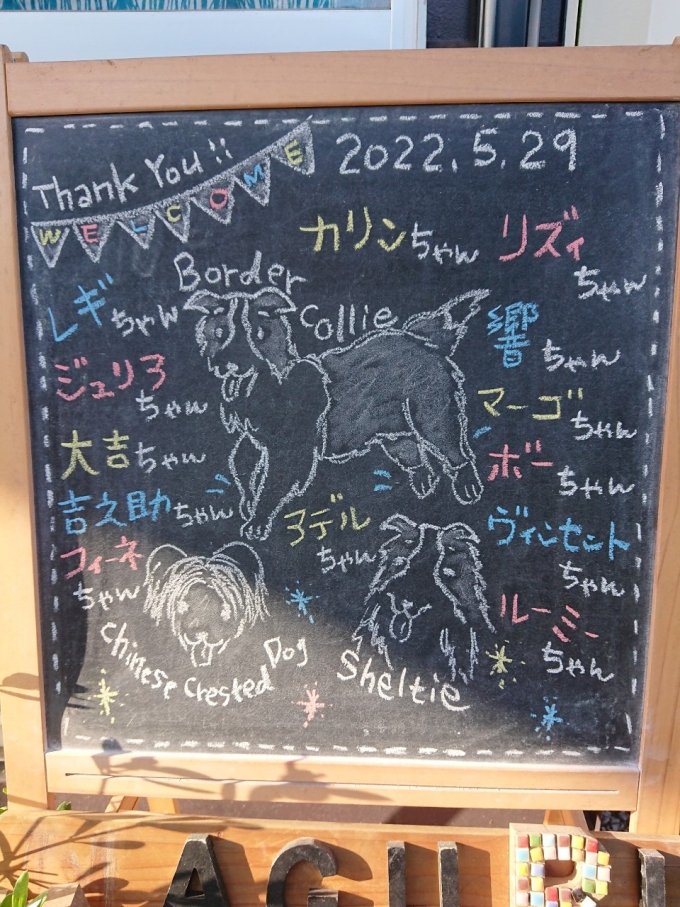 Thank You!!
WELCOME
2022.5.29
カリンちゃん
リズィ
ちゃん
Border
Collie
レギちゃん
響ちゃん
ジュリア
ちゃん
マーゴ
ちゃん
大吉ちゃん
ボー
ちゃん
吉之助ちゃん
アデル
ちゃん
ヴィンセント
ちゃん
フィーネ
ちゃん
ルーミー
ちゃん
Chinese Crested Dog
Sheltie